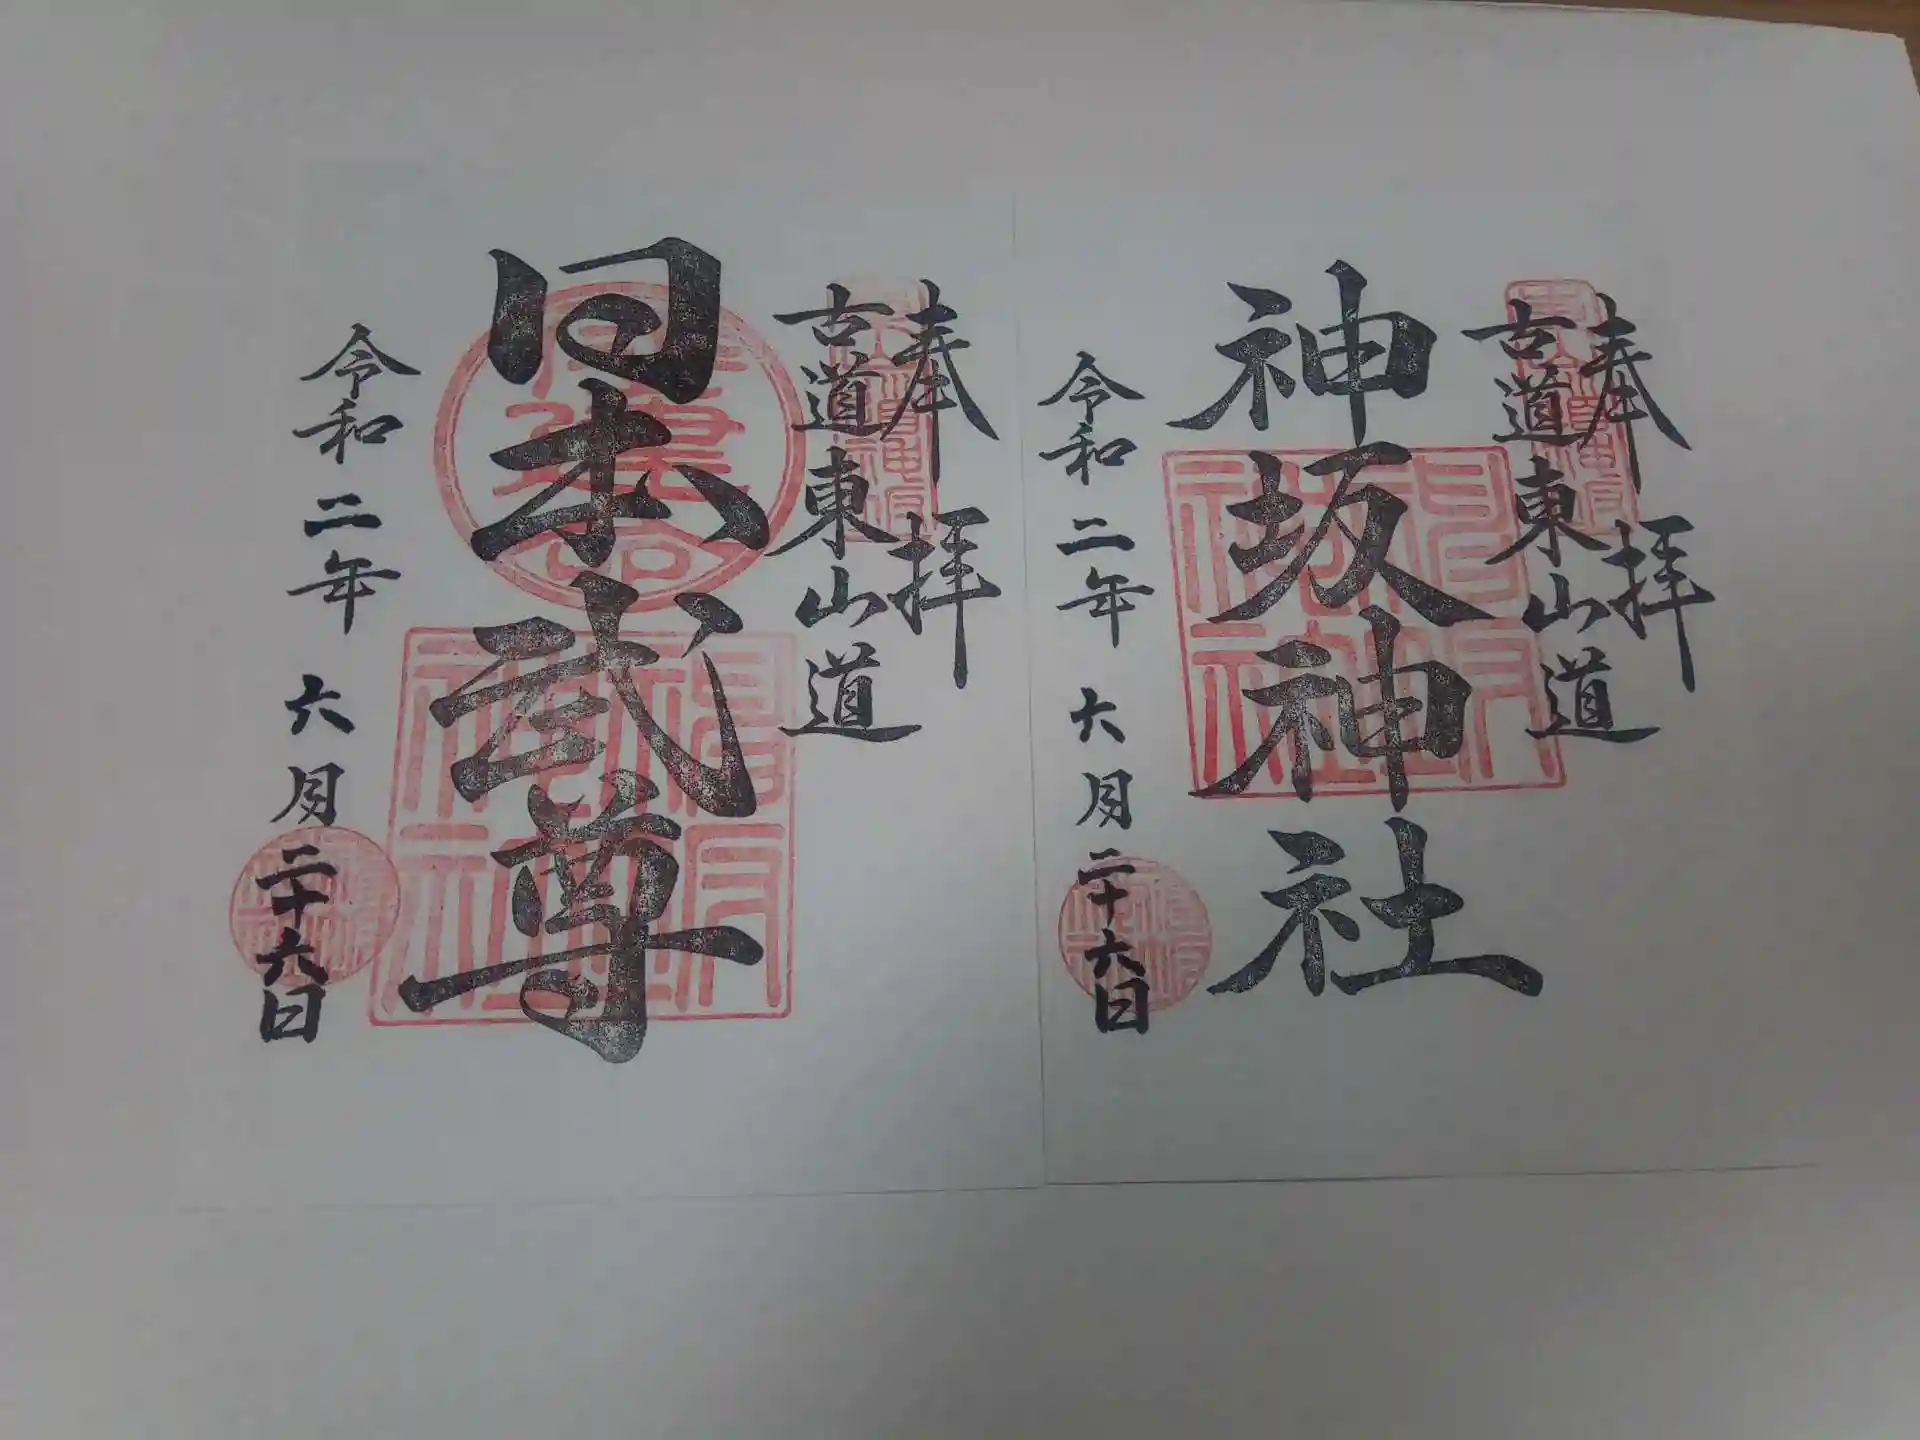 奉拝
古道東山道
神坂神社
令和二年六月二十六日
奉拝
古道東山道
日本武尊
令和二年六月二十六日